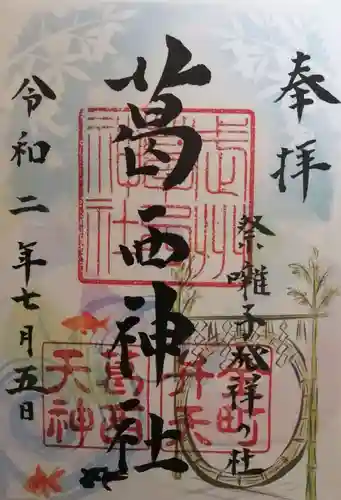 奉拝
祭囃子発祥の社
葛西神社
令和二年七月五日
葛西
天神